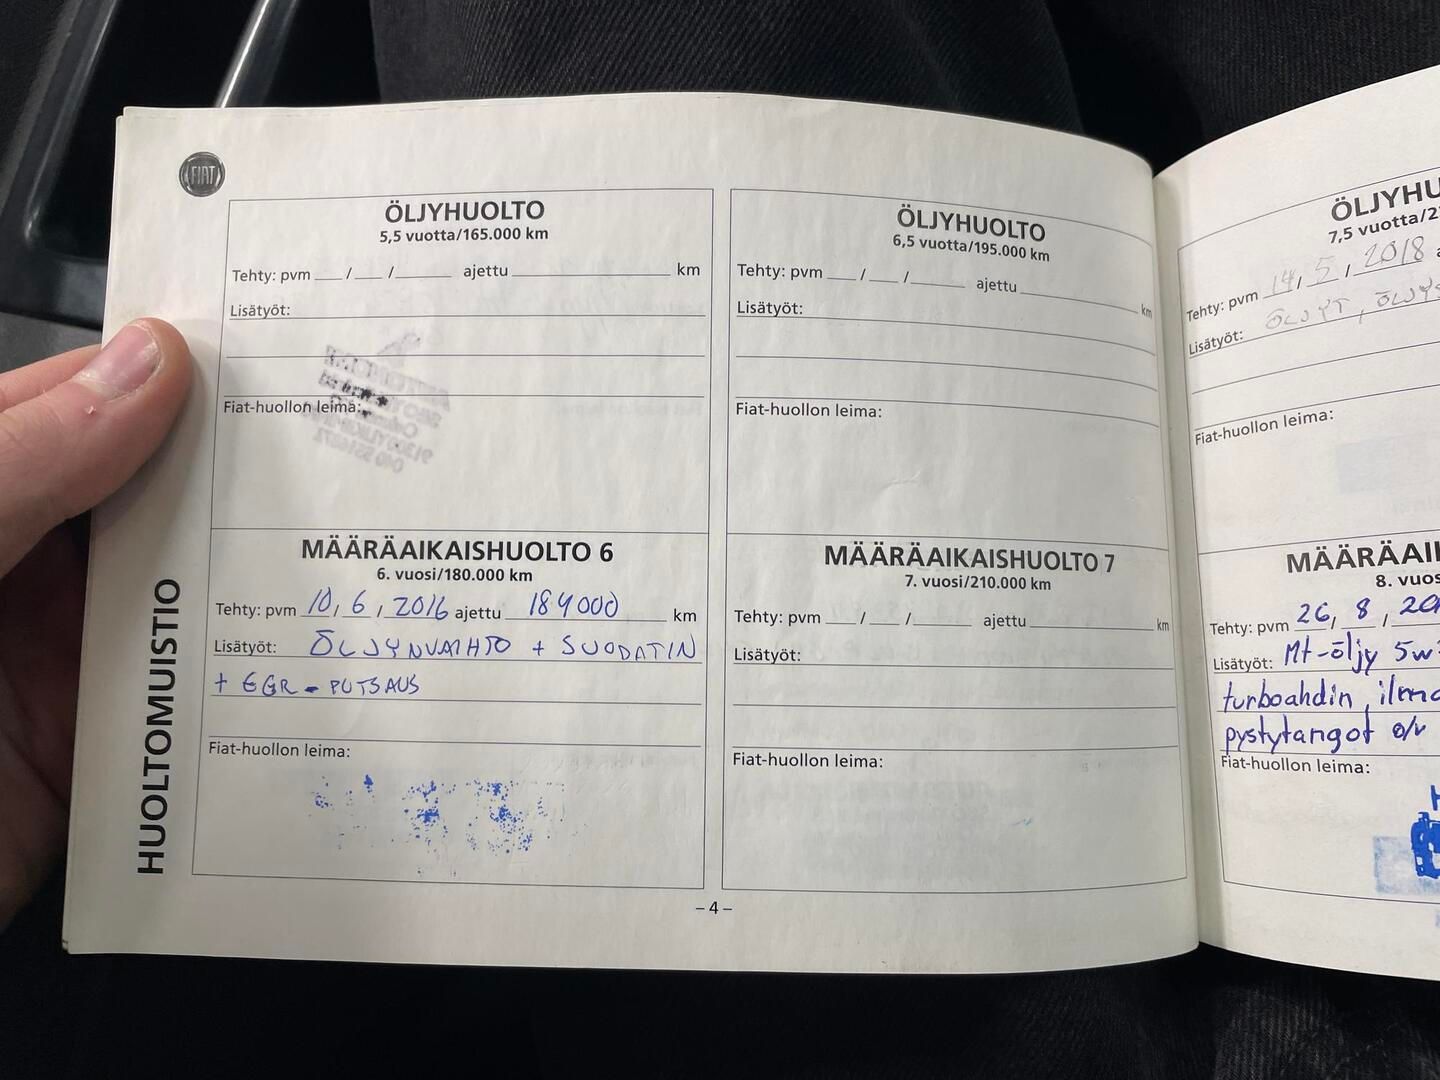 FIAT
HUOLTOMUISTIO
ÖLJYHUOLTO
5,5 vuotta/165.000 km
Tehty: pvm ___/___/______ ajettu ______ km
Lisätyöt:
Fiat-huollon leima:
MÄÄRÄAIKAISHUOLTO 6
6. vuosi/180.000 km
Tehty: pvm 10, 6, 2016 ajettu 184000 km
Lisätyöt: ÖLJYNVAIHTO + SUODATIN
+ EGR - PUTSAUS
Fiat-huollon leima:
ÖLJYHUOLTO
6,5 vuotta/195.000 km
Tehty: pvm ___/___/______ ajettu ______ km
Lisätyöt:
Fiat-huollon leima:
MÄÄRÄAIKAISHUOLTO 7
7. vuosi/210.000 km
Tehty: pvm ___/___/______ ajettu ______ km
Lisätyöt:
Fiat-huollon leima:
– 4 –
ÖLJYHU
7,5 vuotta/2
Tehty: pvm 14, 5, 2018 a
Lisätyöt: ÖLJYT,
Fiat-huollon leima:
MÄÄRÄAI
8. vuos
Tehty: pvm 26, 8, 20
Lisätyöt: Mt-öljy 5w
turboahdin, ilma
pystytangot o/v
Fiat-huollon leima: